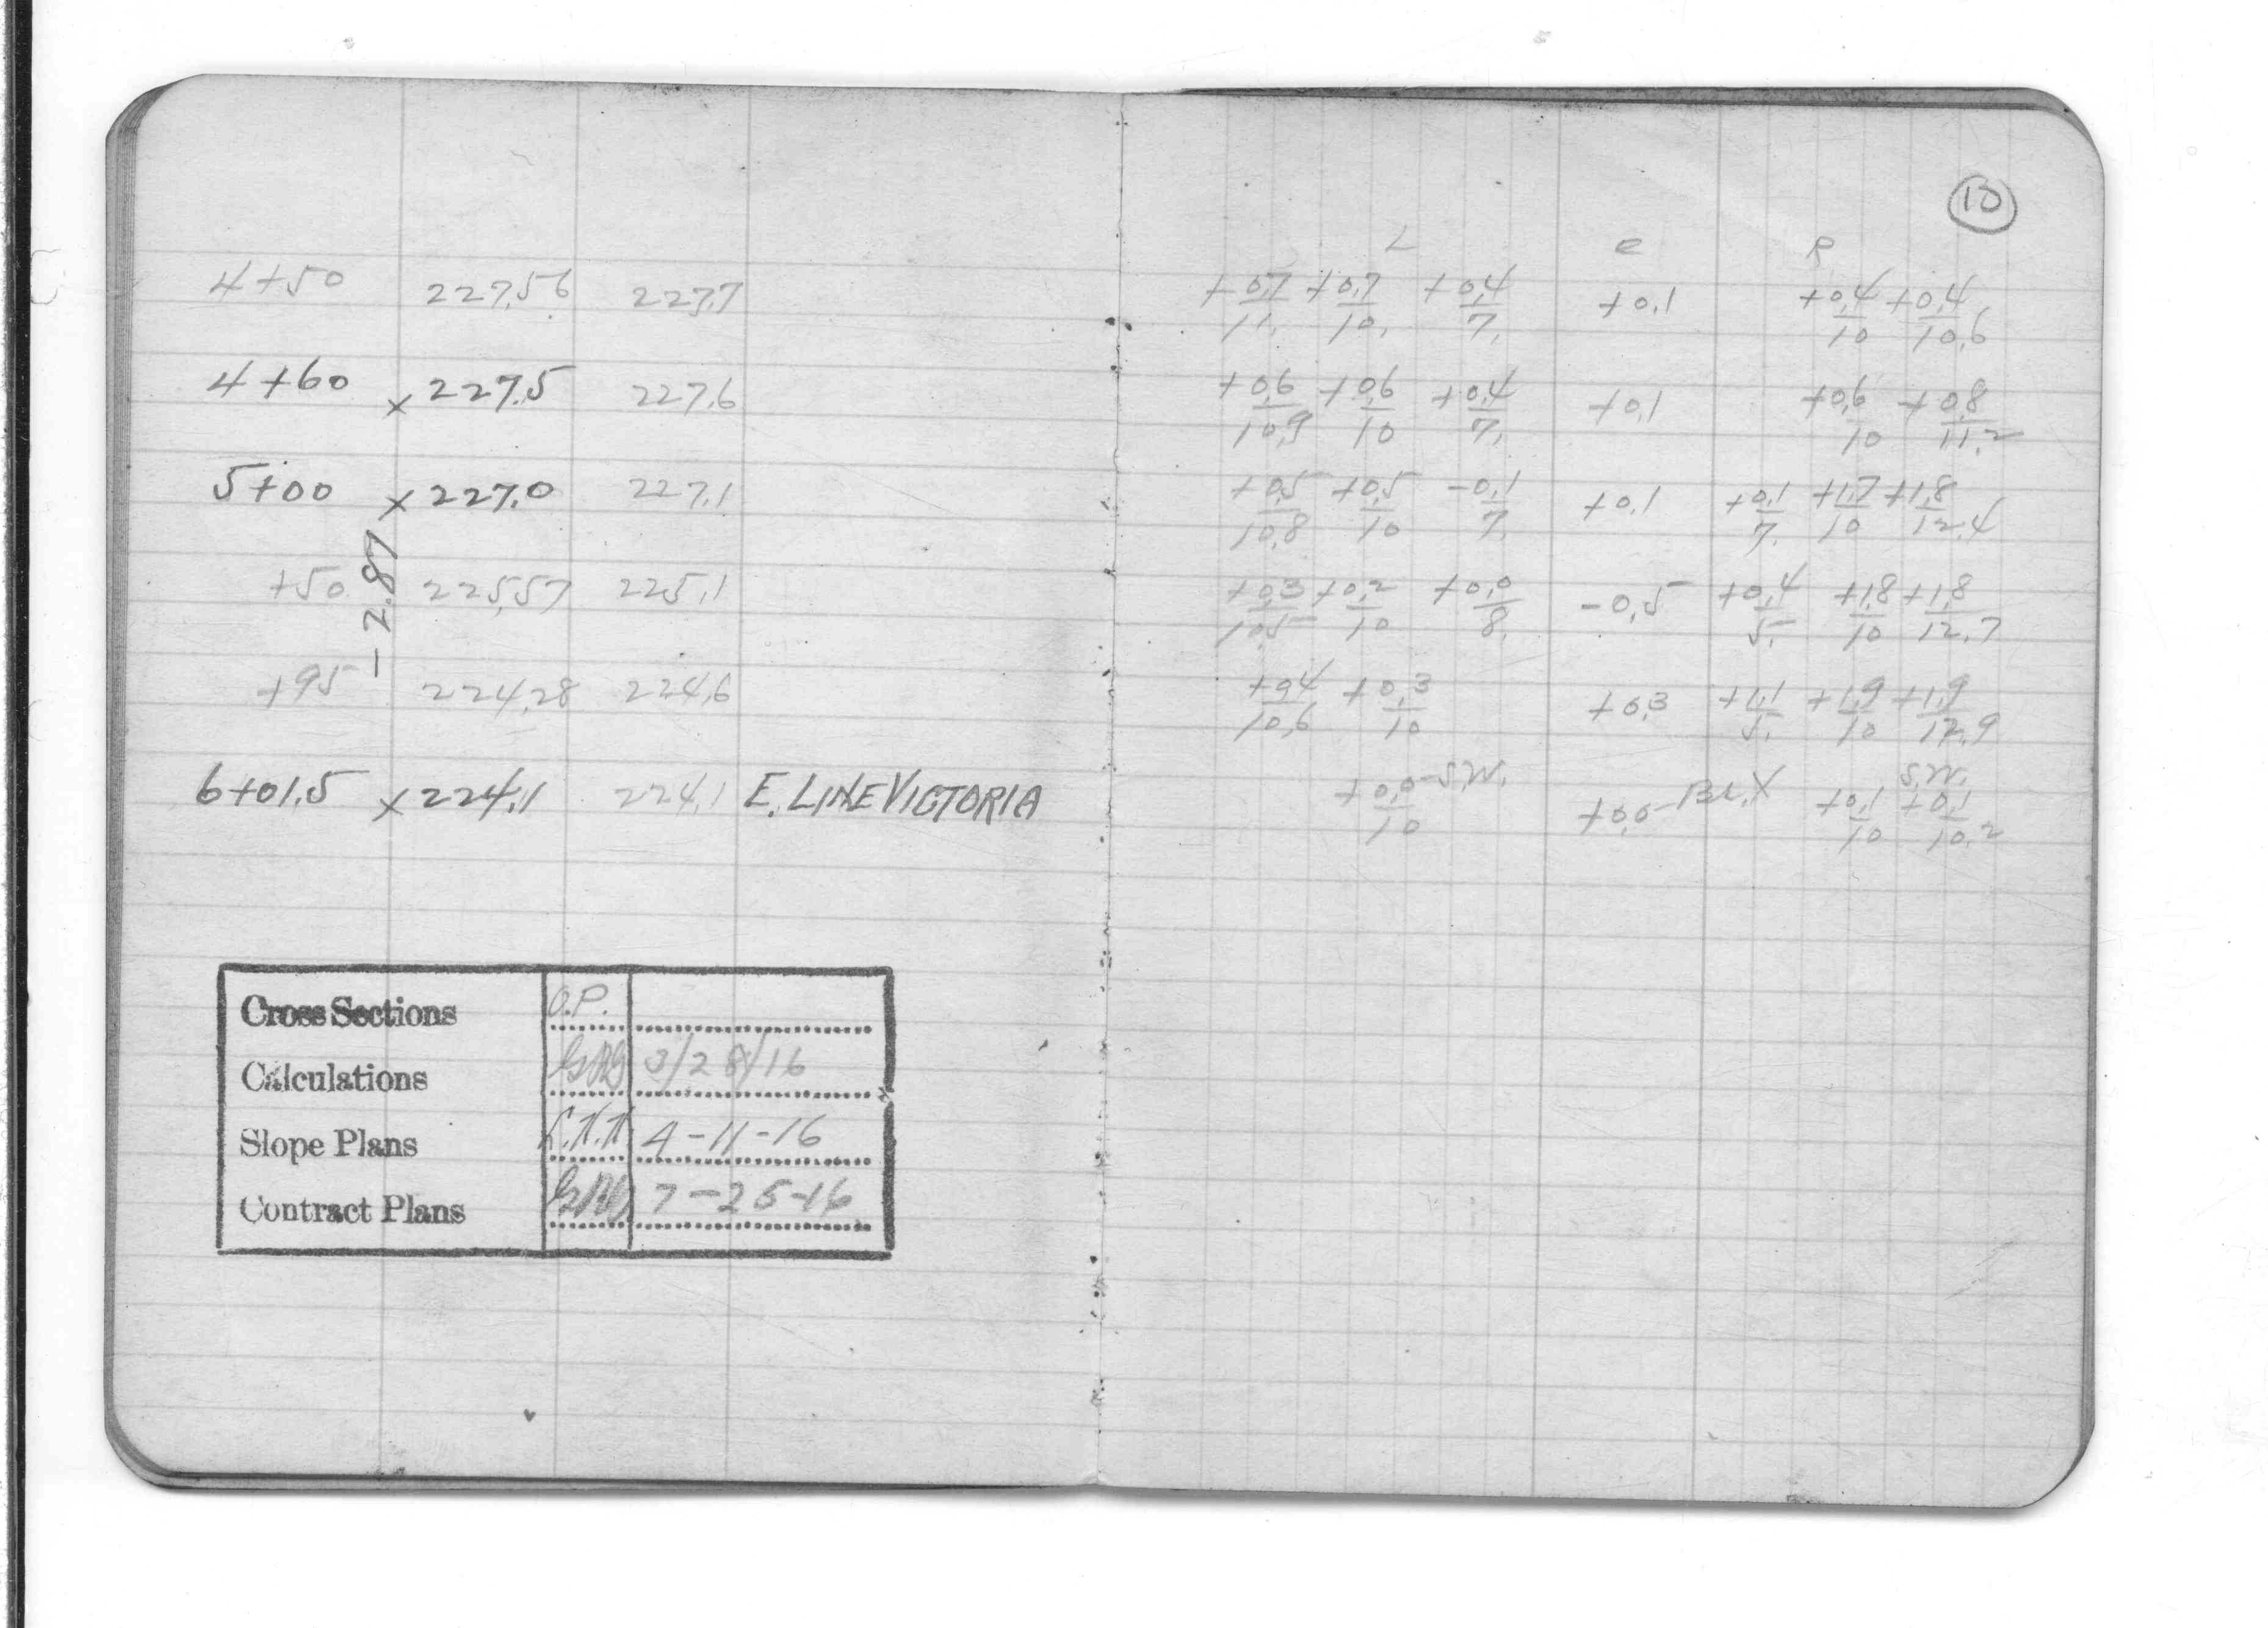 4+50 227.56 227.7
4+60 x 227.5 227.6
5+00 x 227.0 227.1
-2.87
+50 225.57 225.1
+95 224.28 224.6
6+01.5 x 224.1 224.1 E. LINE VICTORIA
Cross Sections O.P.
Calculations 3/28/16
Slope Plans 4-11-16
Contract Plans 7-25-16
10
L C R
+0.7/11. +0.7/10. +0.4/7. +0.1 +0.4/10 +0.4/10.6
+0.6/10.9 +0.6/10 +0.4/7. +0.1 +0.6/10 +0.8/11.2
+0.5/10.8 +0.5/10 -0.1/7. +0.1 +0.1/7. +1.7/10 +1.8/12.4
+0.3/10.5 +0.2/10 +0.0/8. -0.5 +0.4/5. +1.8/10 +1.8/12.7
+0.4/10.6 +0.3/10 +0.3 +1.1/5. +1.9/10 +1.9/12.9
+0.0/10 -S.W. +0.0 +0.1/10 S.W. +0.1/10.2